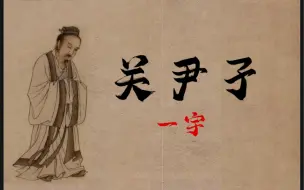 关尹子
一宇